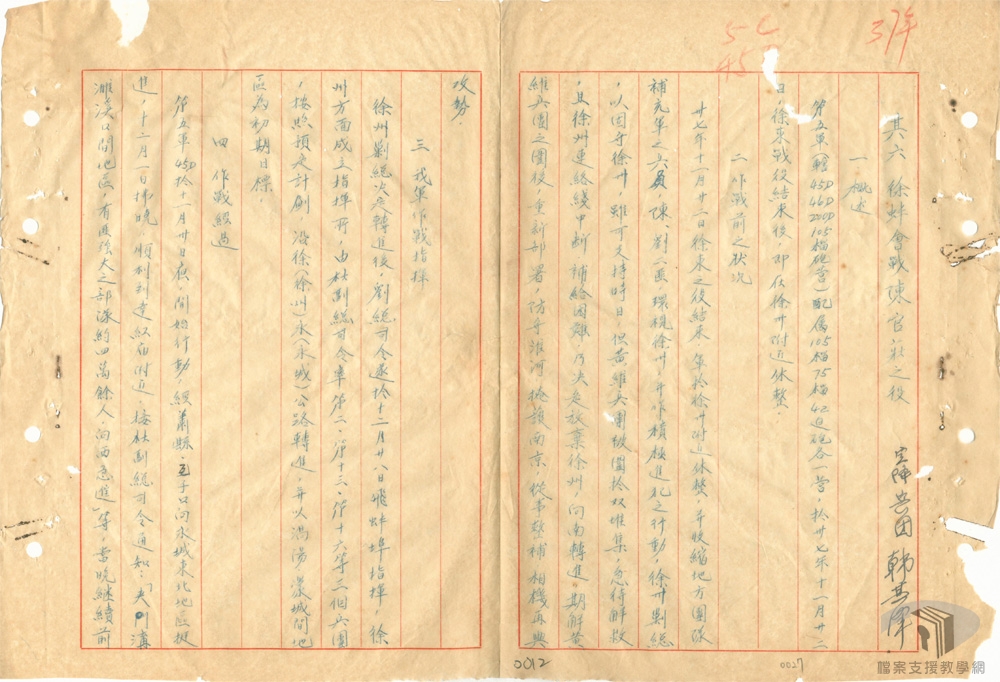 37年
5C
45D
其六 徐蚌會戰陳官莊之役
第五兵團 韓其澤
一 概述
第五軍(轄45D 46D 200D 105榴砲營)配屬105榴75榴42迫砲各一營,於卅七年十一月廿二
日,徐東戰役結束後,即在徐州附近休整.
二 作戰前之狀況
卅七年十一月廿二日徐東之役結束,軍於徐州附近休整,并收編地方團隊
補充軍之兵員,陳、劉二匪環視徐州,并作積極進犯之行動,徐州剿總
,以困守徐州,雖可支持時日,但黃維兵團被圍於双堆集,急待解救
,且徐州連絡綫中斷,補給困難,乃決定放棄徐州,向南轉進,期解黃
維兵團之圍後,重新部署,防守淮河,掩護南京,從事整補,相機再興
攻勢.
三 我軍作戰指揮
徐州剿總決定轉進後,劉總司令遂於十一月廿八日飛蚌埠指揮,徐
州方面成立指揮所,由杜副總司令率第二、第十三、第十六等三個兵團
,按照預定計劃 沿徐(徐州)永(永城)公路轉進,并以渦陽、蒙城間地
區為初期目標.
四 作戰經過
第五軍45D於十一月卅日夜間始行動,經蕭縣、王子口向永城東北地區挺
進,十二月一日拂曉,順利到達 附近 接杜副總司令通知:「夾溝
濉溪口間地區,有匪強大之部隊約四萬餘人,向西急進」等,當晚繼續前
0012
0027
檔案支援教學網